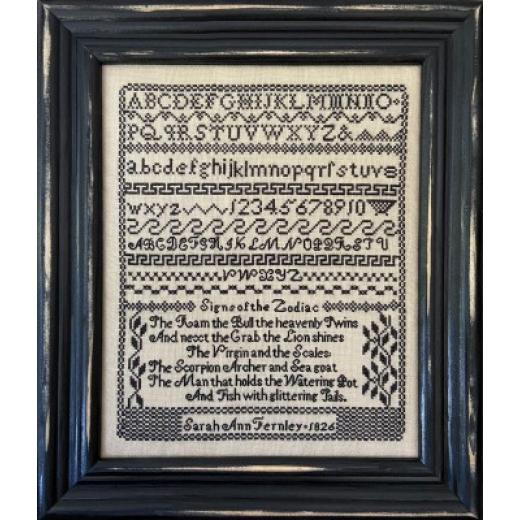 ABCDEFGHIJKLMNO
PQRSTUVWXYZ&
abcdefghijklmnopqrſstuv
wxyz 12345678910
ABCDEFGHIKLMNOPQRSTU
VWXYZ
Signs of the Zodiac
The Ram the Bull the heavenly Twins
And next the Crab the Lion shines
The Virgin and the Scales:
The Scorpion Archer and Sea goat
The Man that holds the Watering Pot
And Fish with glittering Tails.
Sarah Ann Fernley 1826